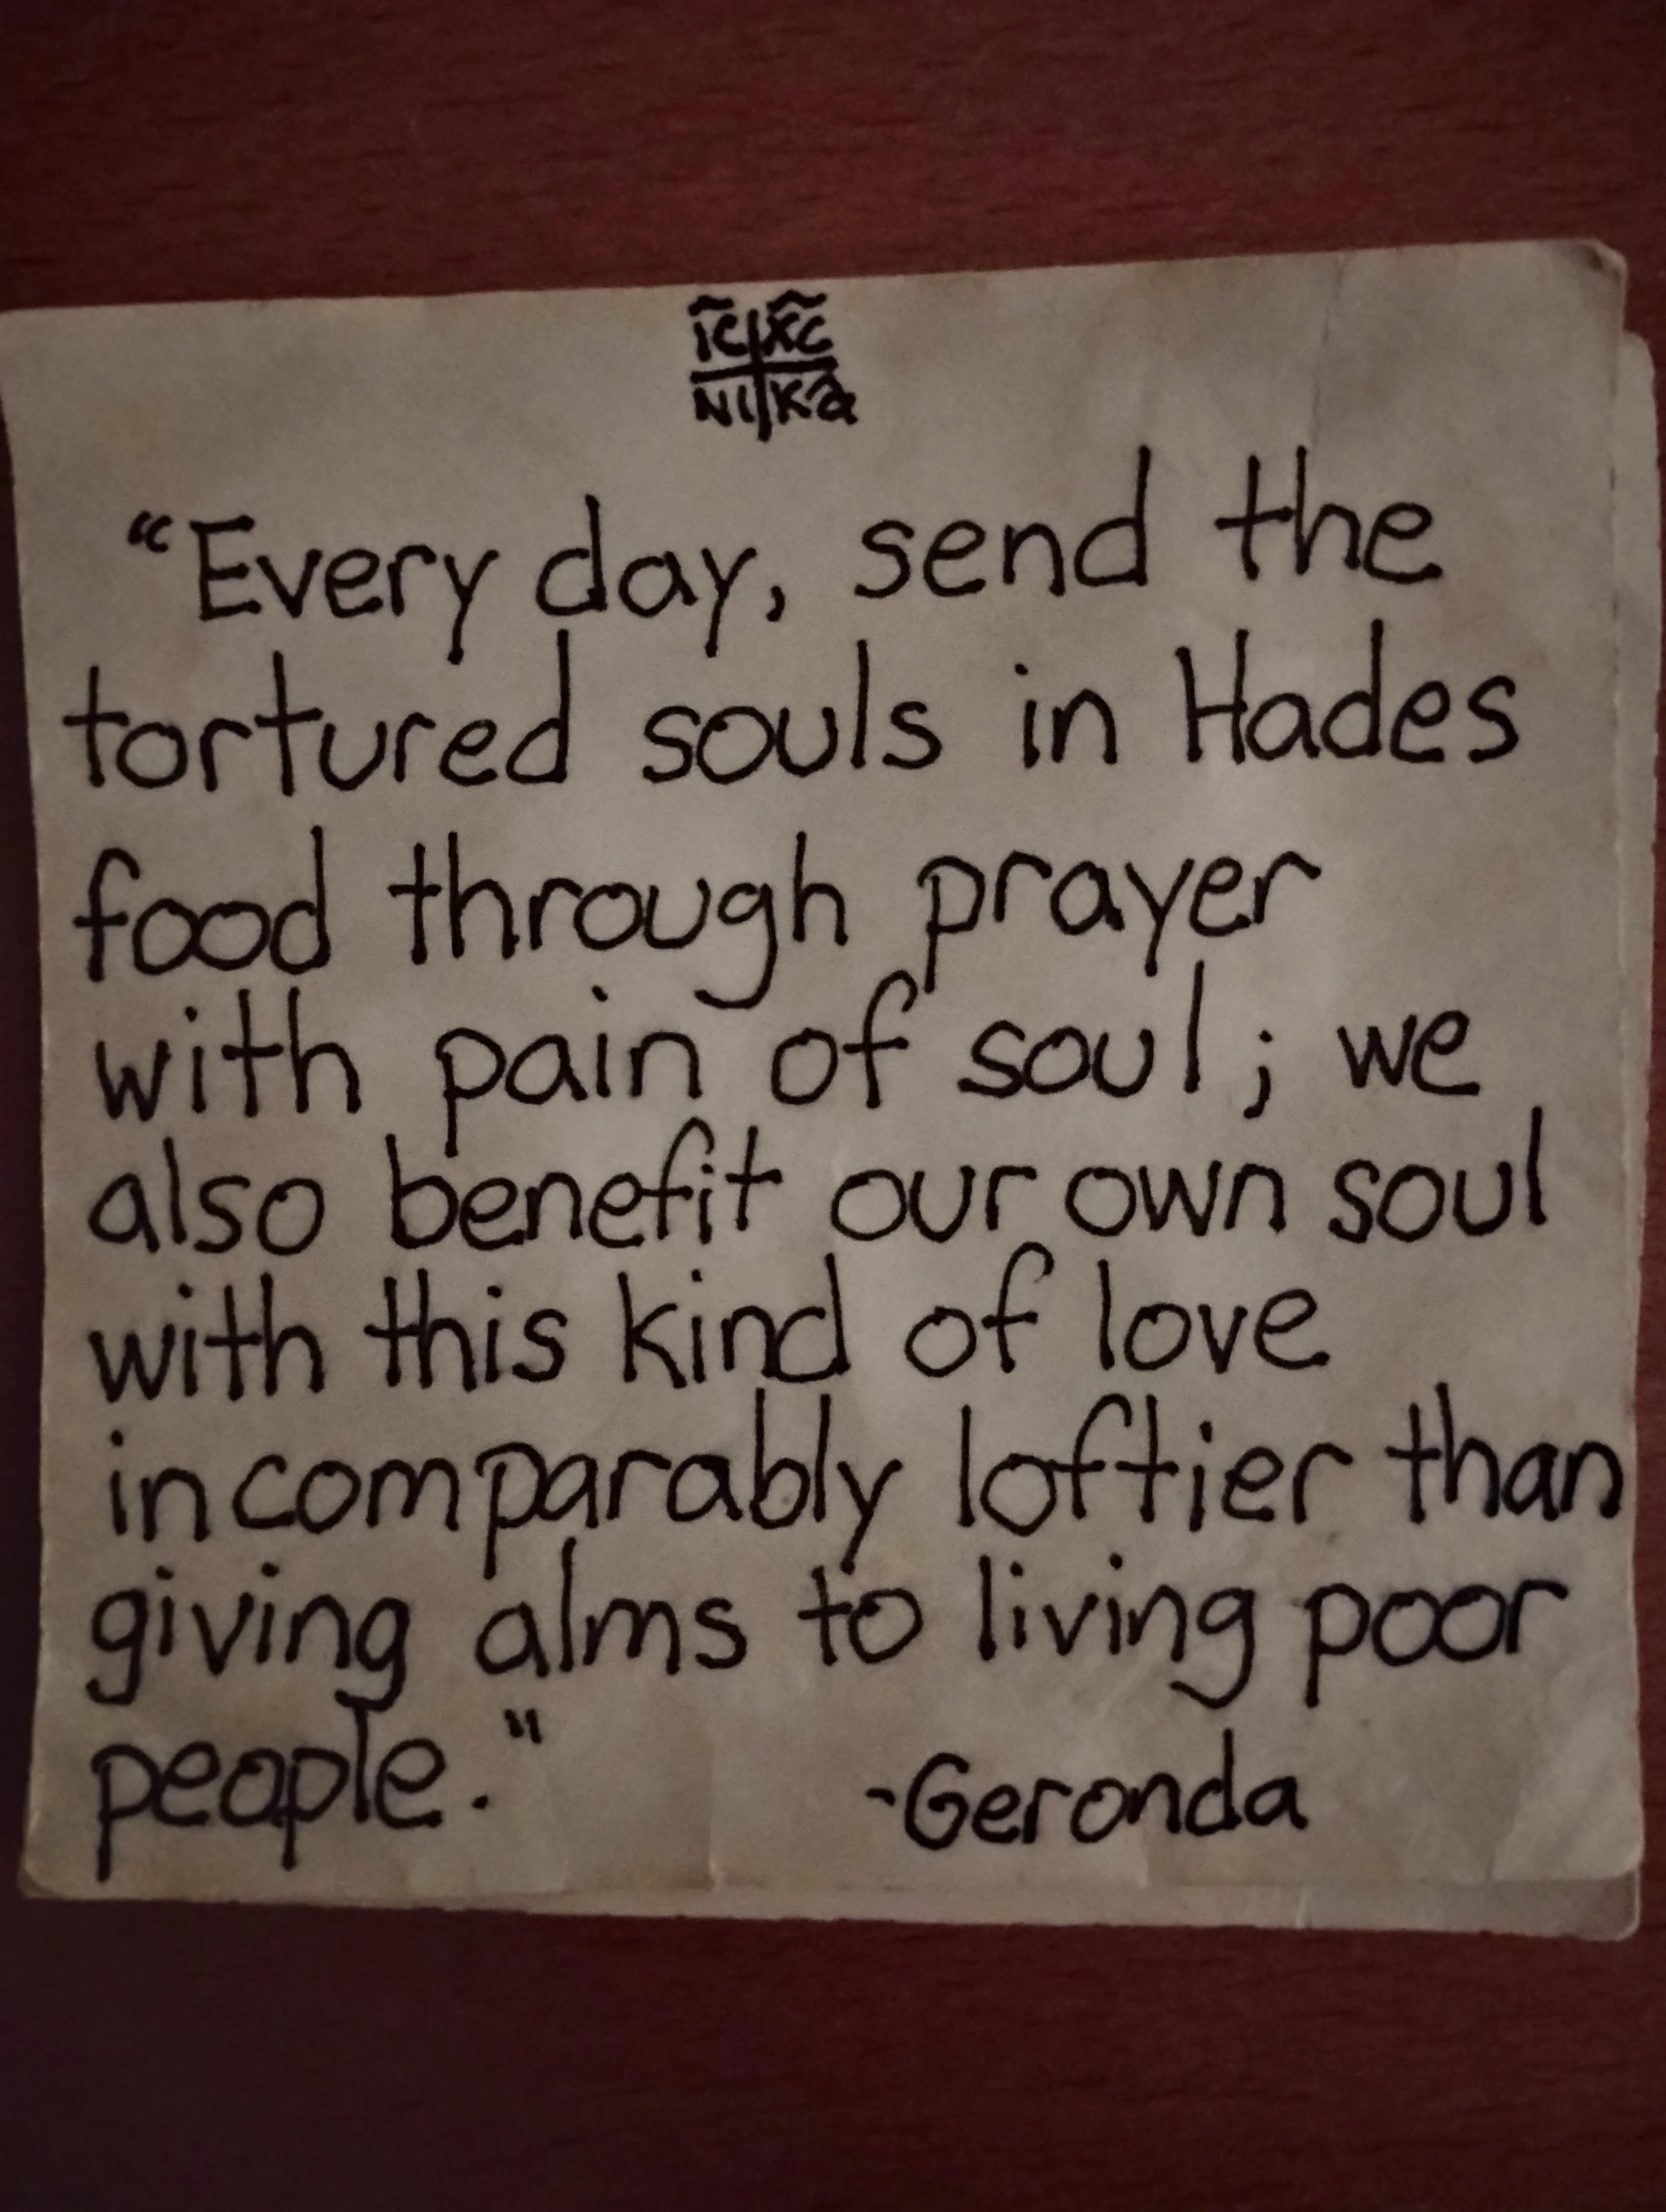 IC XC
NI Ka
“Every day, send the
tortured souls in Hades
food through prayer
with pain of soul; we
also benefit our own soul
with this kind of love
incomparably loftier than
giving alms to living poor
people."
-Geronda